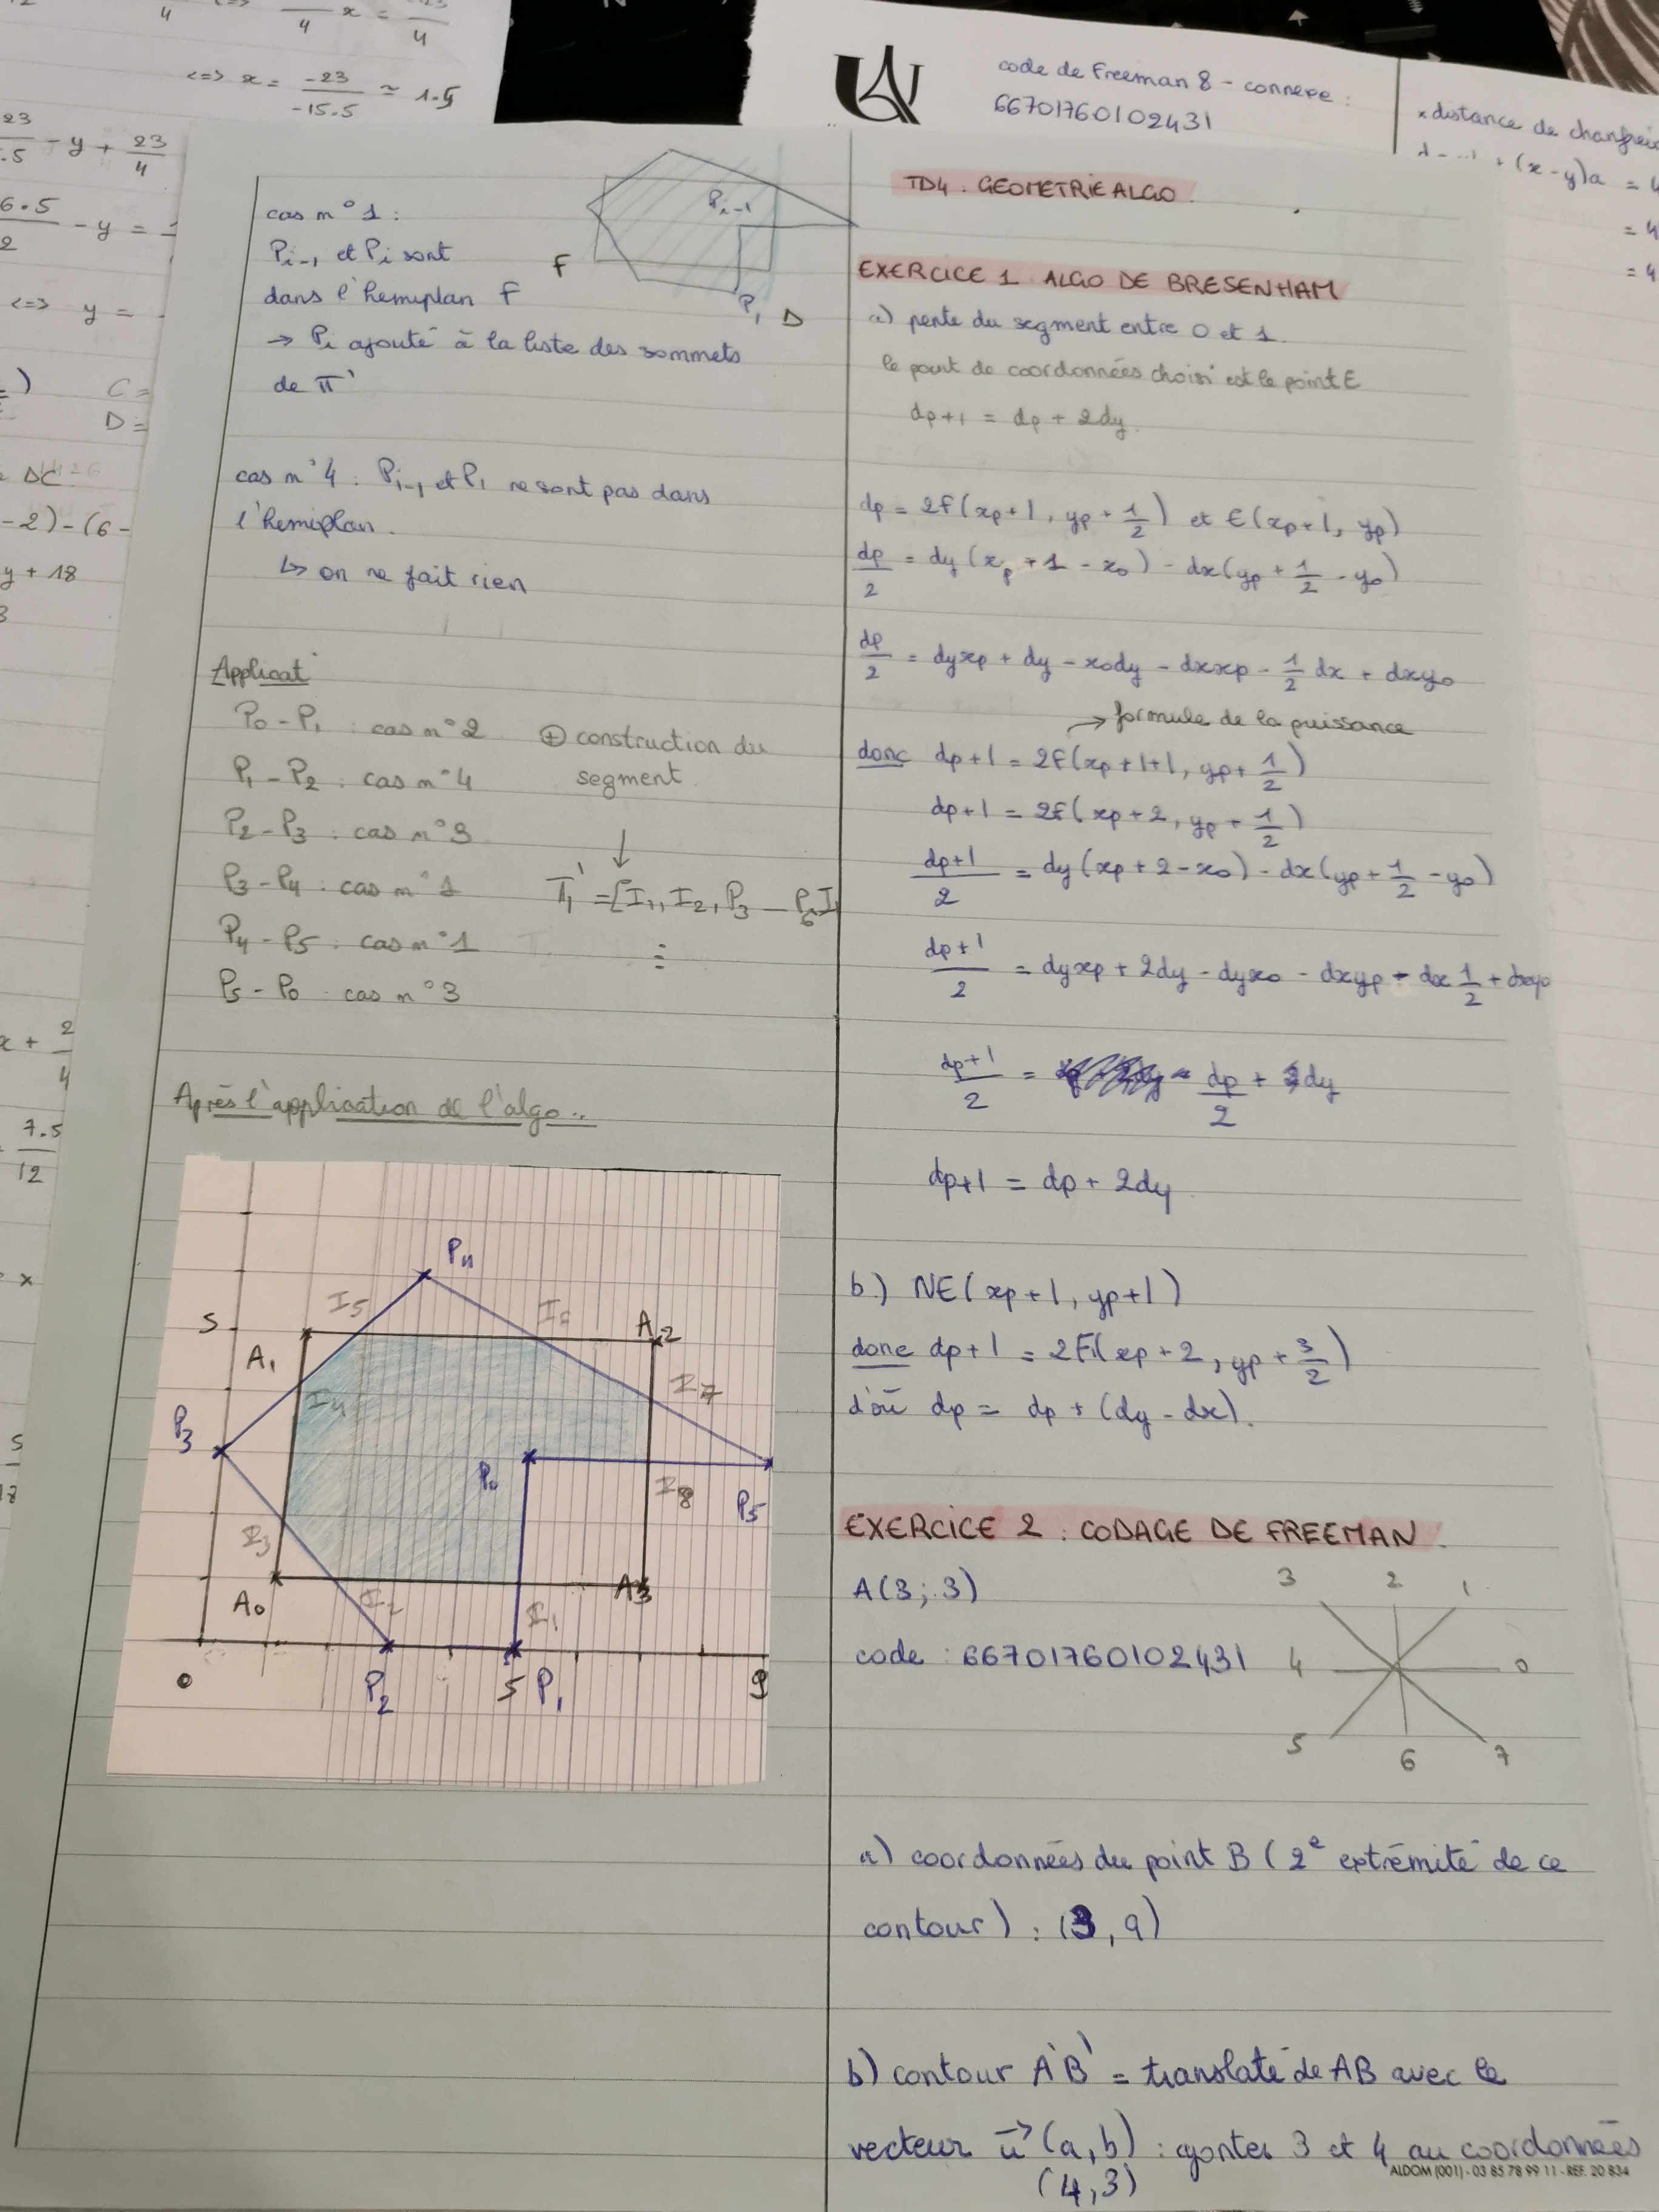 <=> x = -23/-15.5 ≈ 1.5
23/ .5 - y + 23/4
6.5/2 - y =
<=> y =
C =
D =
-2) - (6 -
y + 18
x + 2/4
7.5/12
code de Freeman 8 - connexe :
66701760102431
* distance de chanfrein
+ (x - y)a = 4
= 4
= 4
cas n° 1 :
Pi-1 et Pi sont
dans l'hemiplan F
→ Pi ajouté à la liste des sommets
de π'
F
Pi-1
Pi
D
cas n° 4 : Pi-1 et Pi ne sont pas dans
l'hemiplan.
↳ on ne fait rien
Applicat°
P0 - P1 : cas n° 2
P1 - P2 : cas n° 4
P2 - P3 : cas n° 3
P3 - P4 : cas n° 1
P4 - P5 : cas n° 1
P5 - P0 : cas n° 3
⊕ construction du
segment
↓
π' = [I1, I2, P3
Après l'application de l'algo..
P4
I5
I6
5
A1
A2
I4
I7
P3
P0
I8
P5
I3
A0
I2
I1
A3
0
P2
5
P1
9
TD4 : GEOMETRIE ALGO
EXERCICE 1 ALGO DE BRESENHAM
a) pente du segment entre 0 et 1.
le point de coordonnées choisi est le point E
dp+1 = dp + 2dy.
dp = 2F(xp+1, yp + 1/2) et E(xp+1, yp)
dp/2 = dy(xp + 1 - x0) - dx(yp + 1/2 - y0)
dp/2 = dyxp + dy - x0dy - dxxp - 1/2 dx + dxy0
→ formule de la puissance
donc dp+1 = 2F(xp+1+1, yp+ 1/2)
dp+1 = 2F(xp + 2, yp + 1/2)
dp+1/2 = dy(xp + 2 - x0) - dx(yp + 1/2 - y0)
dp+1/2 = dyxp + 2dy - dyx0 - dxyp - dx 1/2 + dxy0
dp+1/2 = dp/2 + dy
dp+1 = dp + 2dy
b.) NE(xp+1, yp+1)
donc dp+1 = 2F(xp + 2, yp + 3/2)
d'où dp = dp + (dy - dx).
EXERCICE 2 : CODAGE DE FREEMAN.
A(3; 3)
code : 66701760102431
3
2
1
4
0
5
6
7
a) coordonnées du point B (2e extrémité de ce
contour) : (3, 9)
b) contour A'B' = translaté de AB avec le
vecteur u→ (a, b) : ajoutes 3 et 4 au coordonnées
(4,3)
ALDOM (001) - 03 85 78 99 11 - REF. 20 834